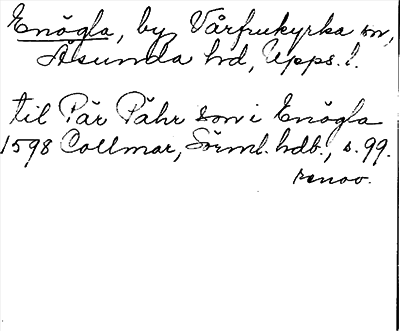 Enögla, by, Vårfrukyrka sn,
Åsunda hd, Upps. l.
til Pär Pähr son i Enögla
1598 Collmar, Sörml. hdb., s. 99.
renov.